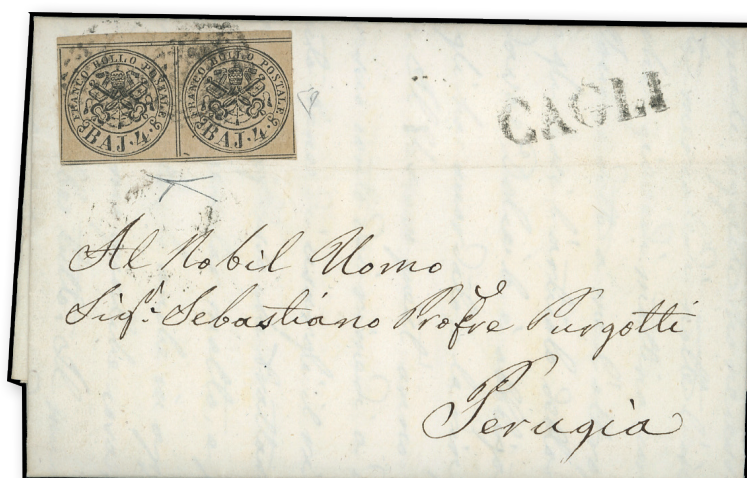 FRANCO BOLLO POSTALE
BAJ. 4.
FRANCO BOLLO POSTALE
BAJ. 4.
CAGLI
Al Nobil Uomo
Sigr. Sebastiano Profre Purgotti
Perugia